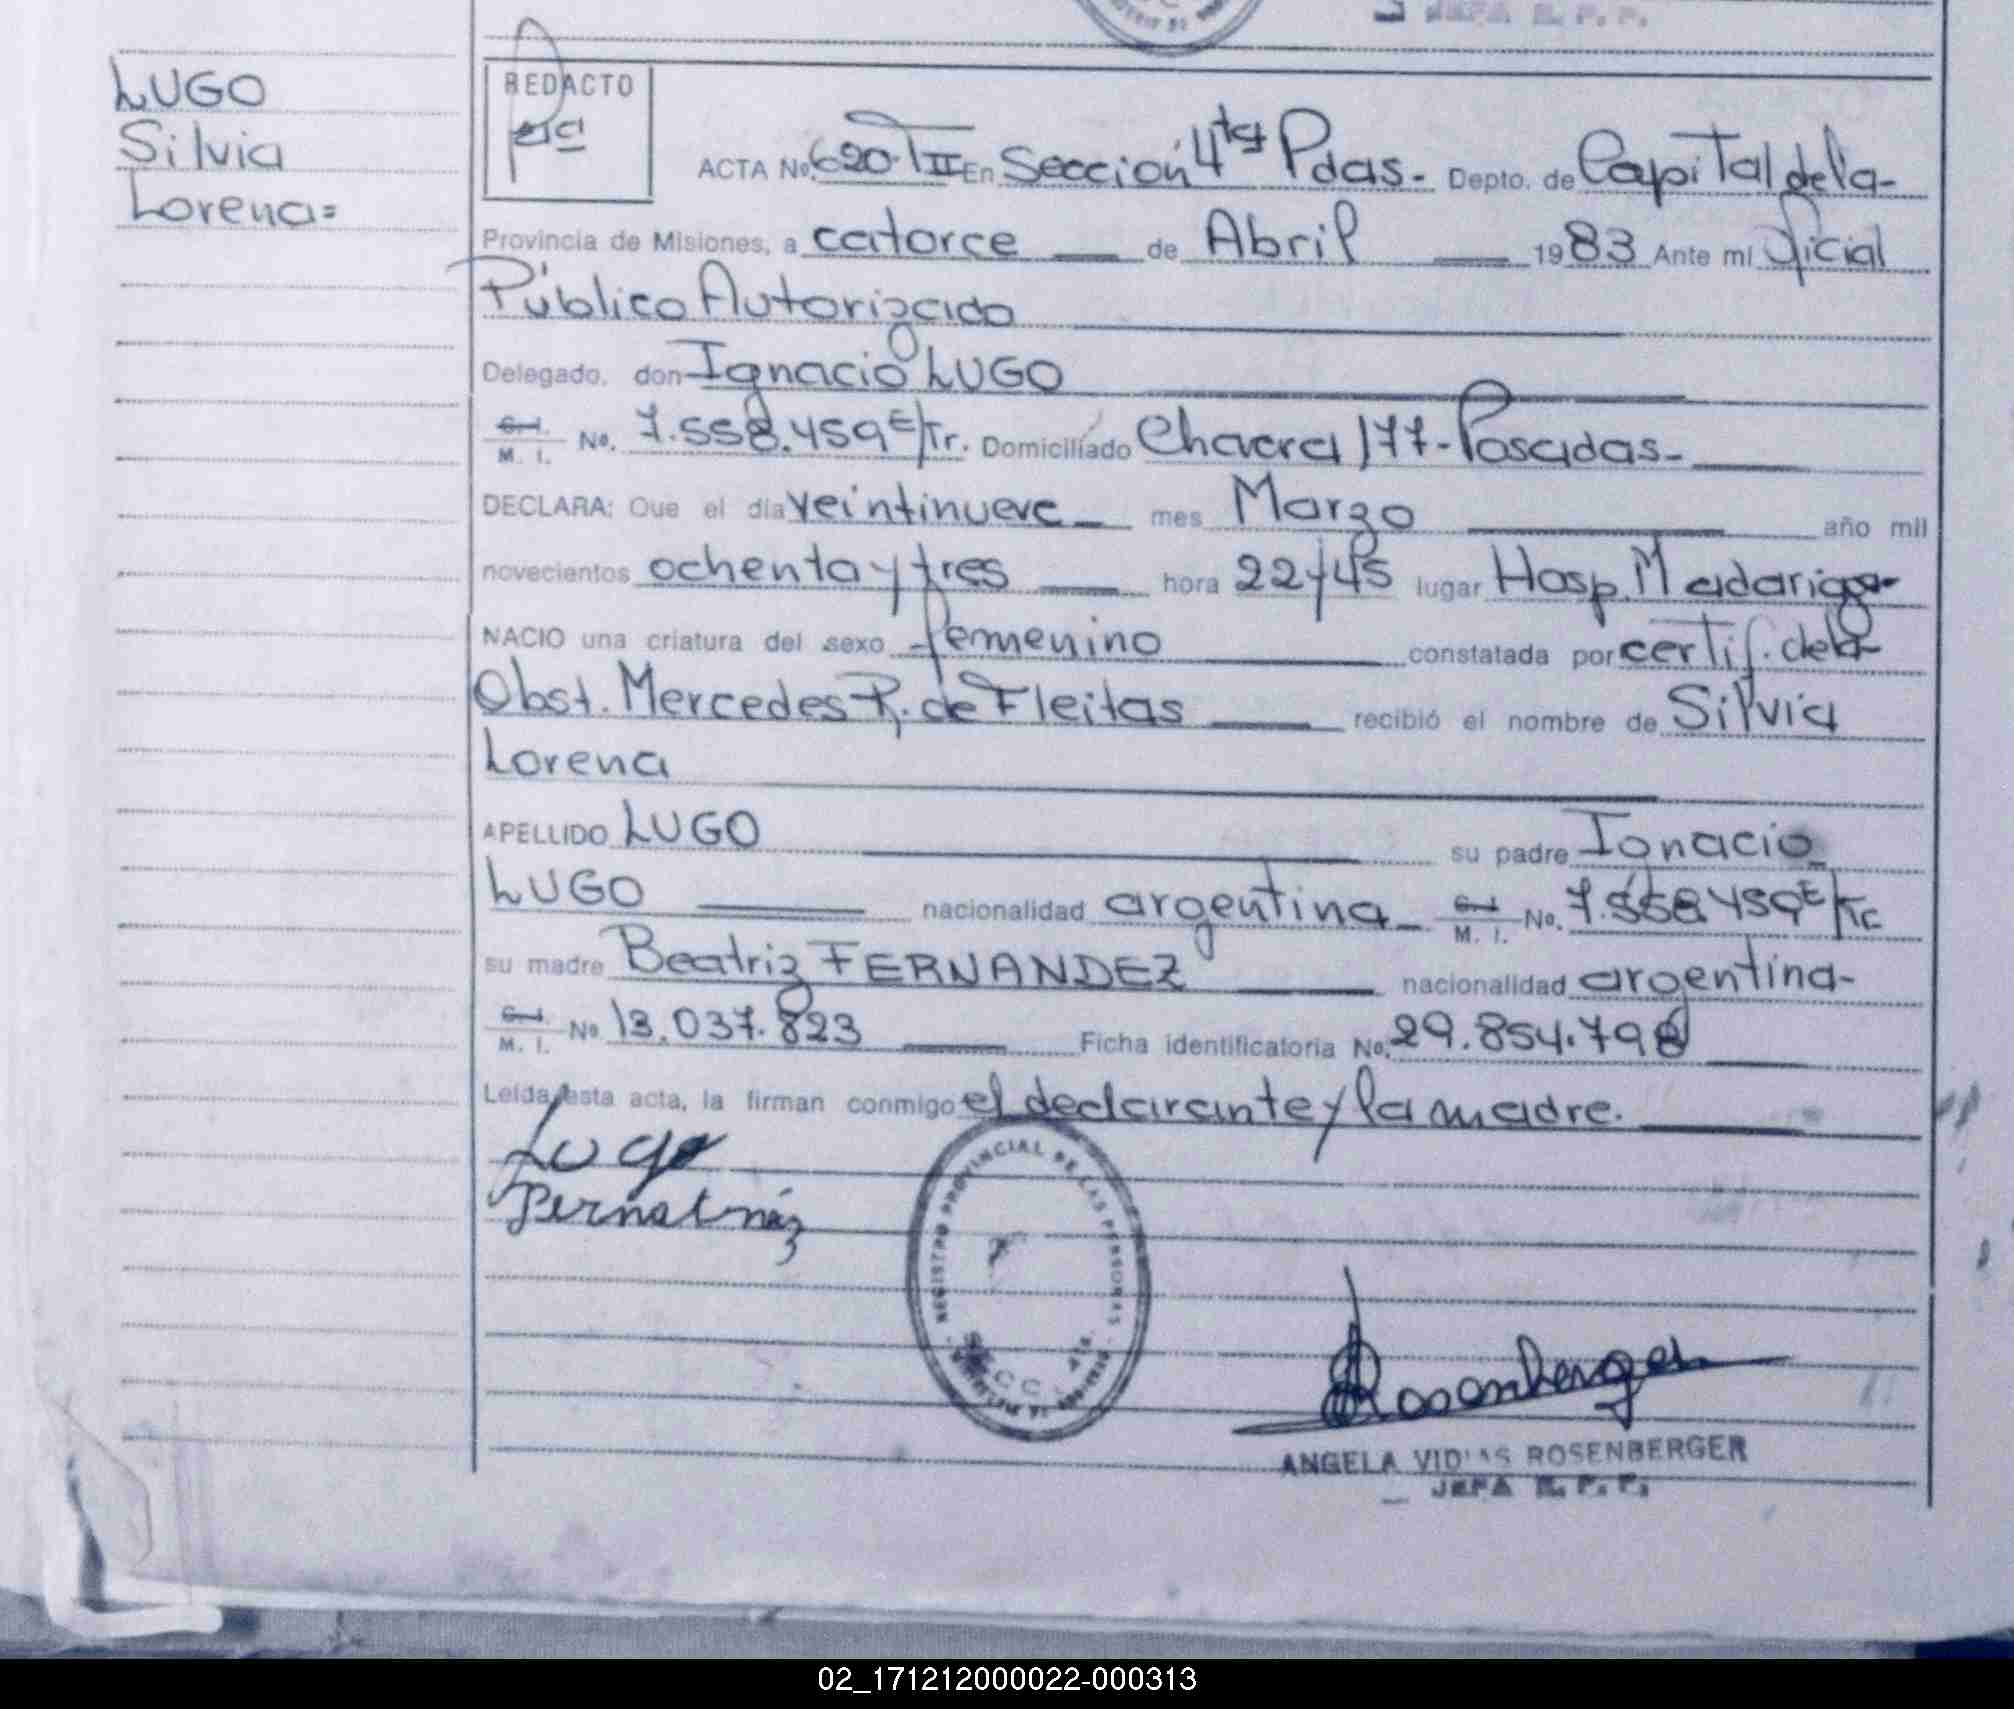 JEFA R. P. P.
LUGO
Silvia
Lorena=
REDACTO
ACTA No. 620. TII En Sección 4ta Pdas.- Depto. de Capital de la-
Provincia de Misiones, a catorce de Abril 1983 Ante mi Oficial
Público Autorizado
Delegado, don Ignacio LUGO
C. I. M. I. No. 7.558.459 E/Tr. Domiciliado Chacra 177- Posadas-
DECLARA: Que el día veintinueve mes Marzo año mil
novecientos ochenta y tres hora 22y45 lugar Hosp. Madariaga-
NACIO una criatura del sexo femenino constatada por certif. de la-
Obst. Mercedes R. de Fleitas recibió el nombre de Silvia
Lorena
APELLIDO LUGO su padre Ignacio
LUGO nacionalidad argentina C. I. M. I. No. 7.558.459 E/Tr
su madre Beatriz FERNANDEZ nacionalidad argentina-
C. I. M. I. No. 13.037.823 Ficha identificatoria No. 29.854.798
Leída esta acta, la firman conmigo el declarante y la madre.
Lugo
REGISTRO PROVINCIAL DE LAS PERSONAS
SECC. 4ta.
Rosenberger
ANGELA ROSENBERGER
JEFA R. P. P.
02_171212000022-000313